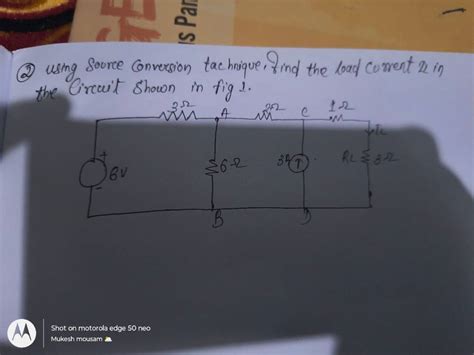 is Par
② using Source Conversion tachnique, find the load current IL in
the Circuit Shown in fig 1.
3Ω A 2Ω C 1Ω
IL
+ 6V - 6Ω 3A RL 3Ω
B D
Shot on motorola edge 50 neo
Mukesh mousam